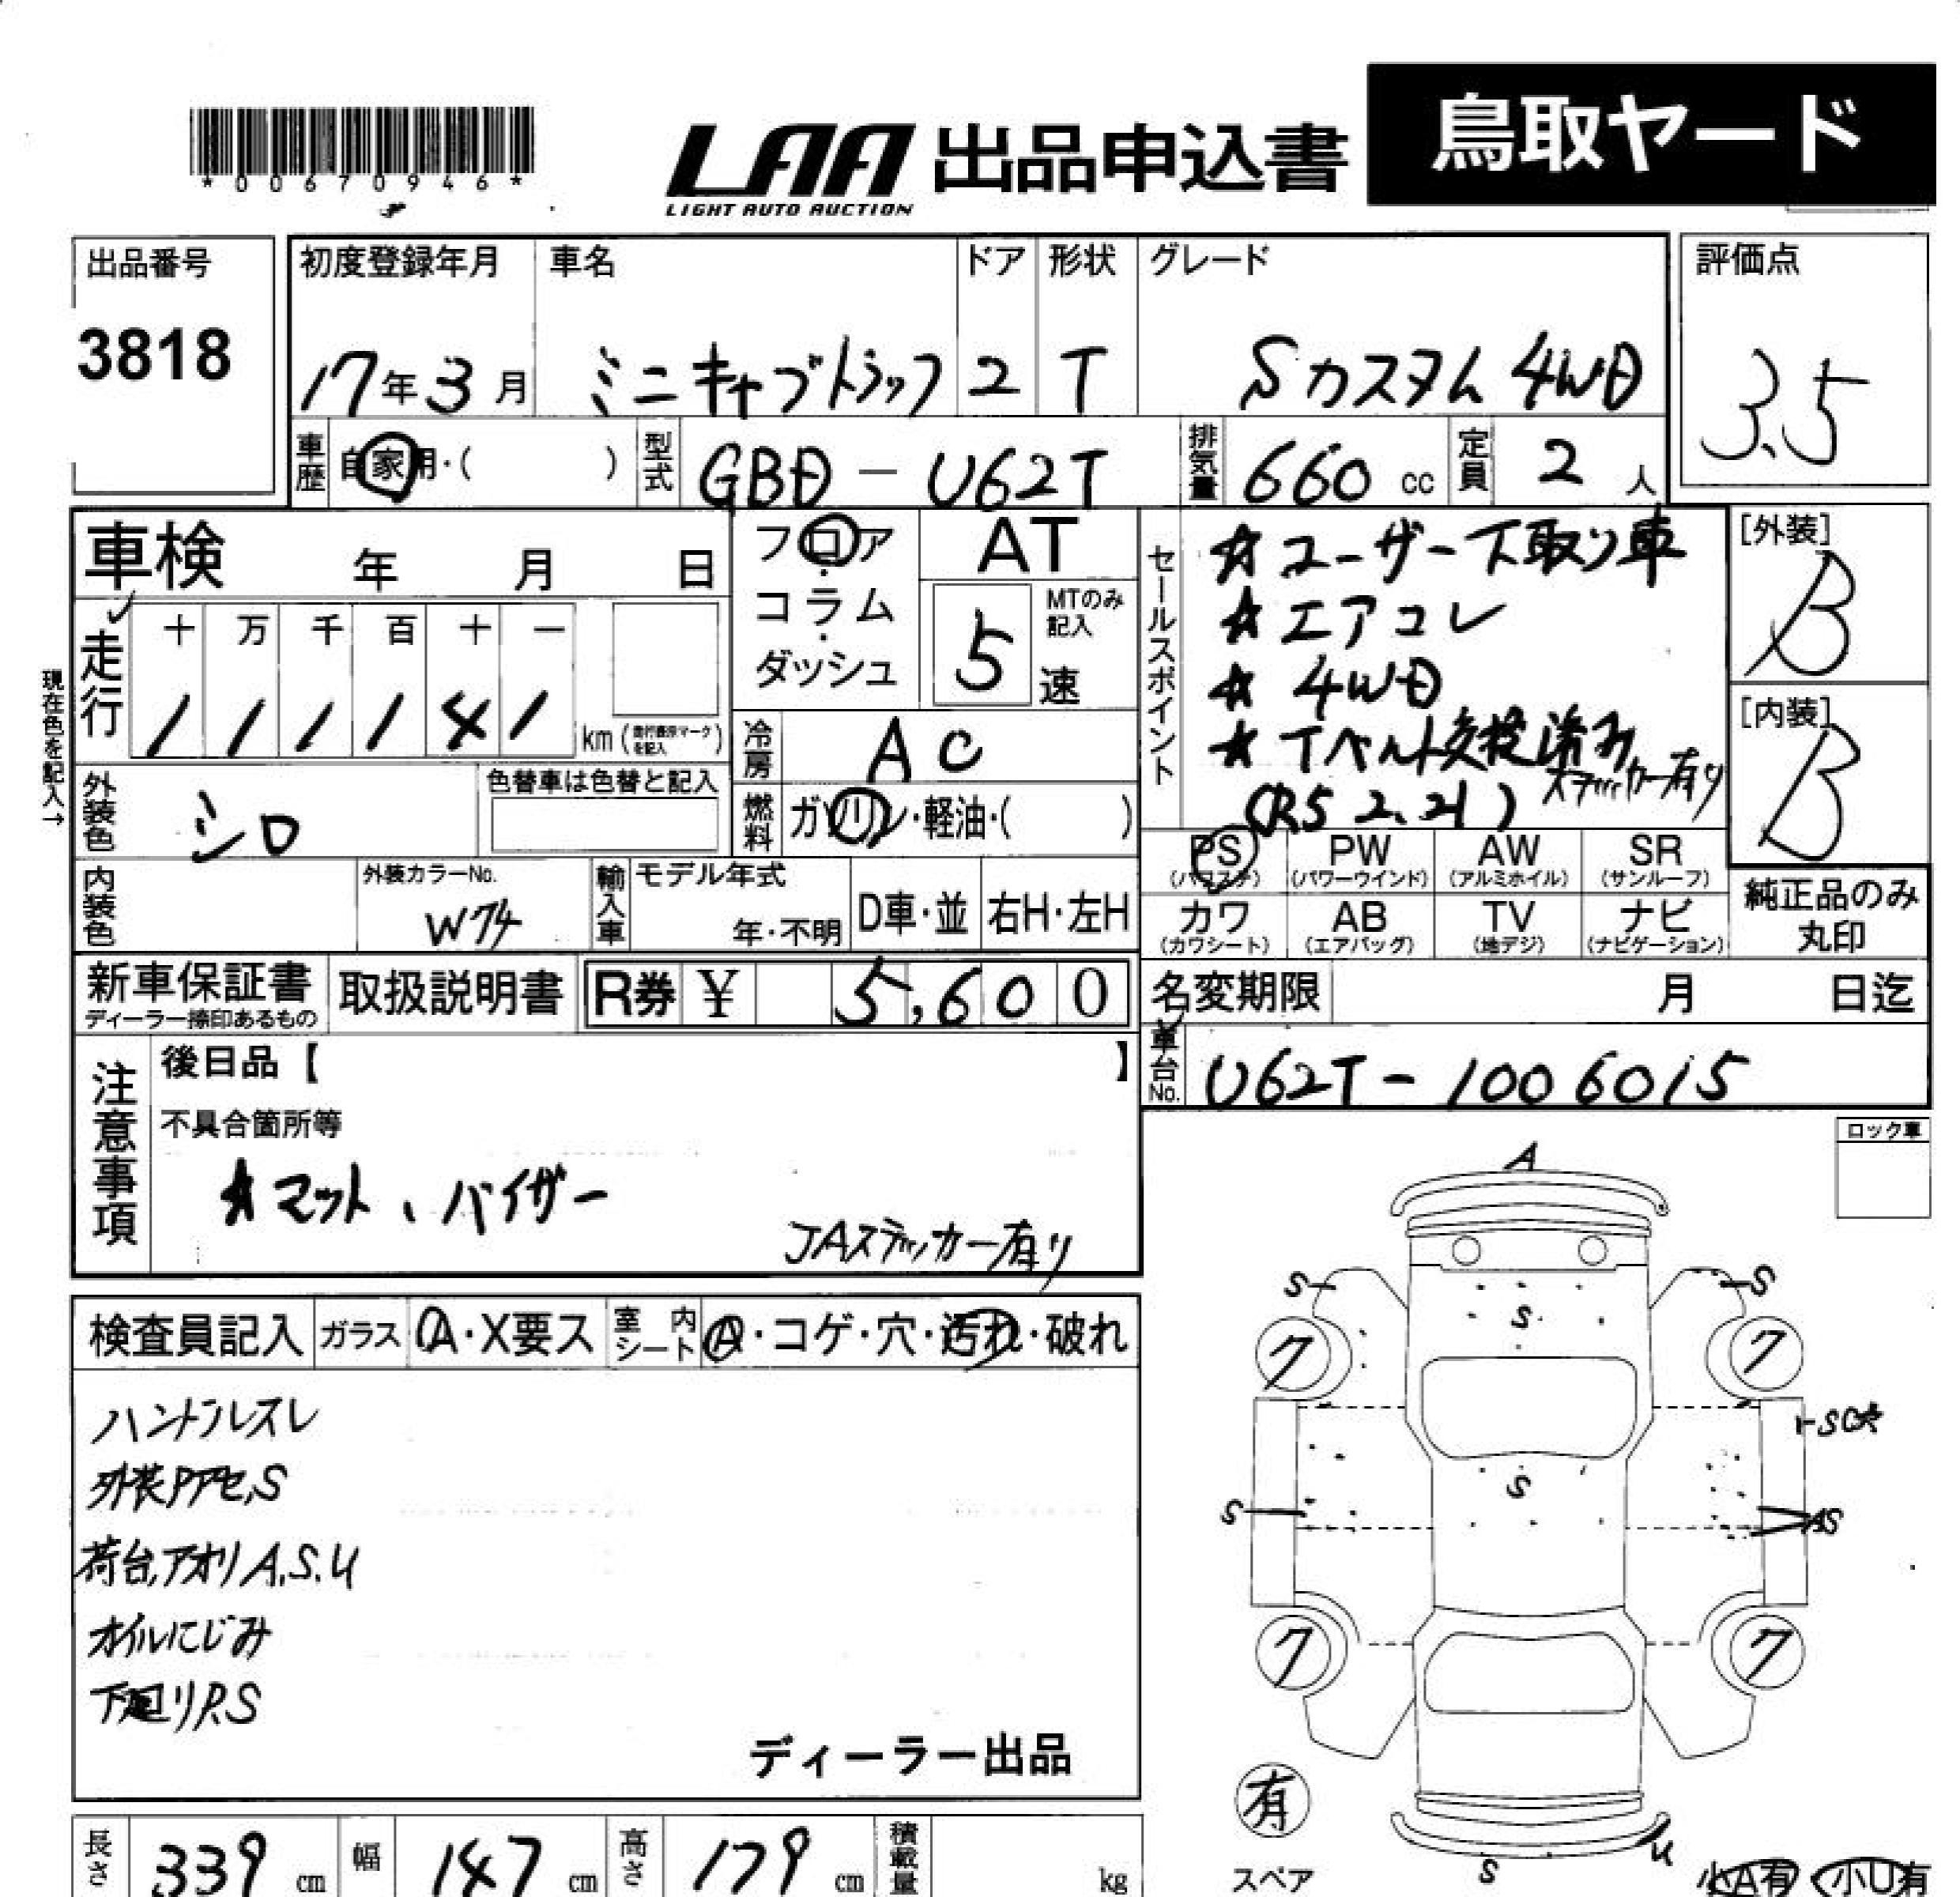 *00670946*
LAA 出品申込書 鳥取ヤード
LIGHT AUTO AUCTION
出品番号 初度登録年月 車名 ドア 形状 グレード 評価点
3818 17年3月 ミニキャブトラック 2 T Sカスタム 4WD 3.5
車歴 自家用・( ) 型式 GBD-U62T 排気量 660 cc 定員 2 人
車検 年 月 日 フロア・コラム・ダッシュ AT
5 MTのみ記入 速
走行 十 万 千 百 十 一
1 1 1 1 4 1 km
現在色を記入→
セールスポイント
★ユーザー下取り車
★エアコン
★4WD
★Tベルト交換済み
(R5 2.21) ステッカー有り
[外装] B
[内装] B
冷房 AC
外装色 シロ 色替車は色替と記入
燃料 ガソリン・軽油・( )
PS PW AW SR
(パワステ) (パワーウインド) (アルミホイル) (サンルーフ)
カワ AB TV ナビ
(カワシート) (エアバッグ) (地デジ) (ナビゲーション)
純正品のみ
丸印
内装色 外装カラーNo. W74 輸入車 モデル年式 年・不明 D車・並 右H・左H
新車保証書 取扱説明書 R券 ¥ 5,600
ディーラー捺印あるもの
名変期限 月 日迄
車台No. U62T-1006015
注意事項
後日品【 】
不具合箇所等
★マット、バイザー
JAステッカー有り
ロック車
検査員記入 ガラス A・X要ス 室内シート A・コゲ・穴・汚れ・破れ
ハンドルスレ
外装Pアセ,S
荷台,アオリA.S.U
オイルにじみ
下廻りP.S
ディーラー出品
A
S S
S
ク ク
S
S AS
ク ク
有
スペア
S U
小A有・小U有
長さ 339 cm 幅 147 cm 高さ 179 cm 積載量 kg